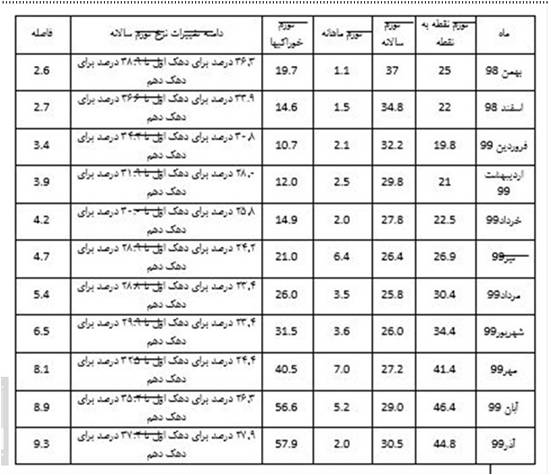 ماه تورم نقطه به نقطه تورم سالانه تورم ماهانه تورم خوراکیها دامنه تغییرات نرخ تورم سالانه فاصله
بهمن 98 25 37 1.1 19.7 ۳۶.۳ درصد برای دهک اول تا ۳۸.۹ درصد برای دهک دهم 2.6
اسفند 98 22 34.8 1.5 14.6 ۳۳.۹ درصد برای دهک اول تا ۳۶.۶ درصد برای دهک دهم 2.7
فروردین 99 19.8 32.2 2.1 10.7 ۳۰.۸ درصد برای دهک اول تا ۳۴.۲ درصد برای دهک دهم 3.4
اردیبهشت 99 21 29.8 2.5 12.0 ۲۸.۰ درصد برای دهک اول تا ۳۱.۹ درصد برای دهک دهم 3.9
خرداد99 22.5 27.8 2.0 14.9 ۲۵.۸ درصد برای دهک اول تا ۳۰.۰ درصد برای دهک دهم 4.2
تیر99 26.9 26.4 6.4 21.0 ۲۴.۲ درصد برای دهک اول تا ۲۸.۹ درصد برای دهک دهم 4.7
مرداد99 30.4 25.8 3.5 26.0 ۲۳.۴ درصد برای دهک اول تا ۲۸.۸ درصد برای دهک دهم 5.4
شهریور99 34.4 26.0 3.6 31.5 ۲۳.۴ درصد برای دهک اول تا ۲۹.۹ درصد برای دهک دهم 6.5
مهر99 41.4 27.2 7.0 40.5 ۲۴.۴ درصد برای دهک اول تا ۳۲.۵ درصد برای دهک دهم 8.1
آبان 99 46.4 29.0 5.2 56.6 ۲۶.۳ درصد برای دهک اول تا ۳۵.۲ درصد برای دهک دهم 8.9
آذر99 44.8 30.5 2.0 57.9 ۲۷.۹ درصد برای دهک اول تا ۳۷.۲ درصد برای دهک دهم 9.3